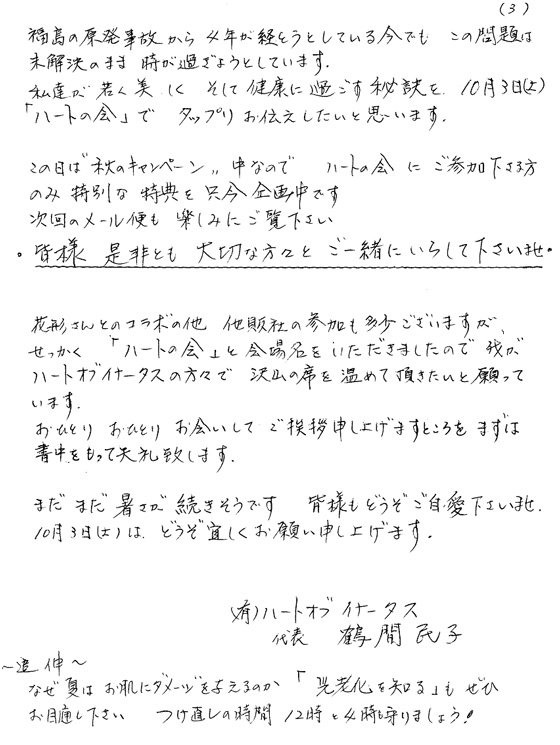 (3)
福島の原発事故から4年が経とうとしている今でも この問題は
未解決のまま 時が過ぎようとしています.
私達が 若く美しく そして健康に過ごす秘訣を、10月3日(土)
「ハートの会」で タップリお伝えしたいと思います.
この日は"秋のキャンペーン〟中なので ハートの会 に ご参加下さる方
のみ 特別な 特典を 只今 企画中です
次回のメール便も 楽しみにご覧下さい
。皆様 是非とも 大切な方々と ご一緒にいらして下さいませ。
花形さんとのコラボの他 他販社の参加も多少ございますが、
せっかく 「ハートの会」と会場名をいただきましたので 我が
ハートオブイナータスの方々で 沢山の席を温めて頂きたいと願って
います.
おひとり おひとり お会いして ご挨拶申し上げますところを まずは
書中をもって失礼致します.
まだ まだ 暑さが 続きそうです 皆様もどうぞご自愛下さいませ.
10月3日(土)は、どうぞ宜しくお願い申し上げます.
(有)ハートオブ イナータス
代表 鶴間民子
~追伸~
なぜ夏は お肌にダメージを与えるのか 「光老化を知る」も ぜひ
お目通し下さい つけ直しの時間 12時と4時も守りましょう!